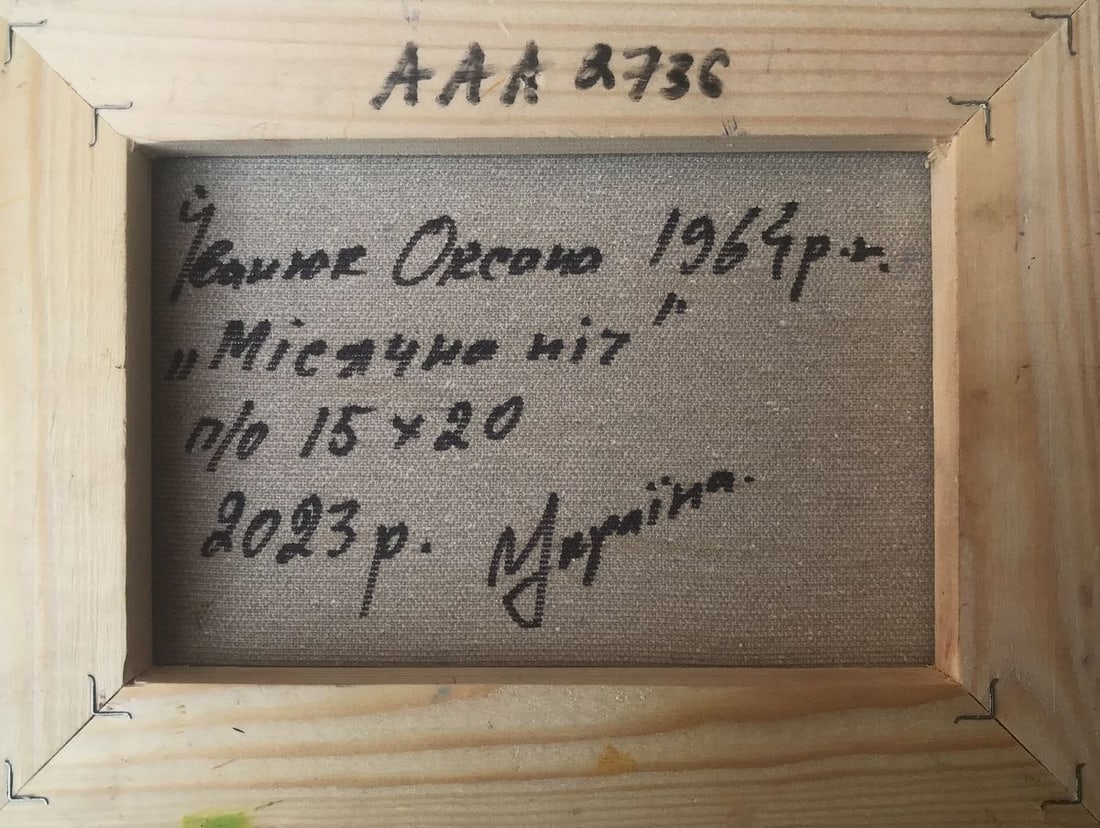 AAA 2736
Іванюк Оксана 1964р.н.
„Місячна ніч"
п/о 15 x 20
2023р. Україна.